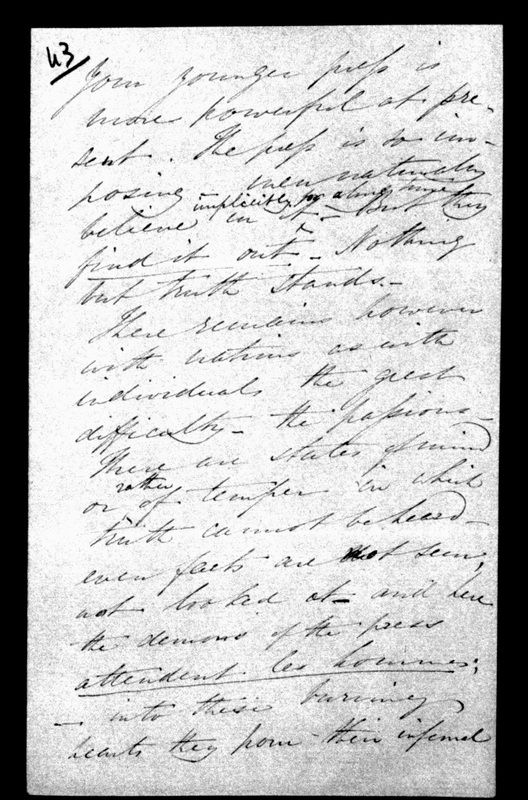 43
Your younger press is
more powerful at pre-
sent. The press is so im-
posing - men naturally
believe implicitly in it for a long time - But they
find it out - Nothing
but truth stands. -
There remains however
with nations as with
individuals the great
difficulty - the passions -
There are states of mind
or rather of temper in which
truth cannot be heard -
even facts are not seen,
not looked at - and here
the demons of the press
attendent les hommes;
- into these burning
hearts they pour their infernal